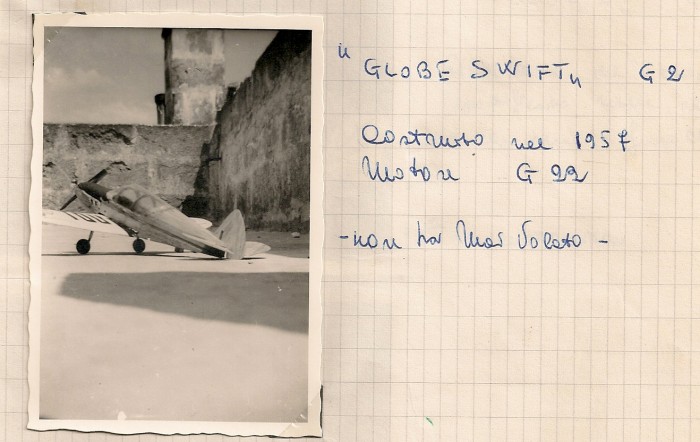 "GLOBE SWIFT" G 2
Costruito nel 1957
Motore G 22
- non ha mai volato -